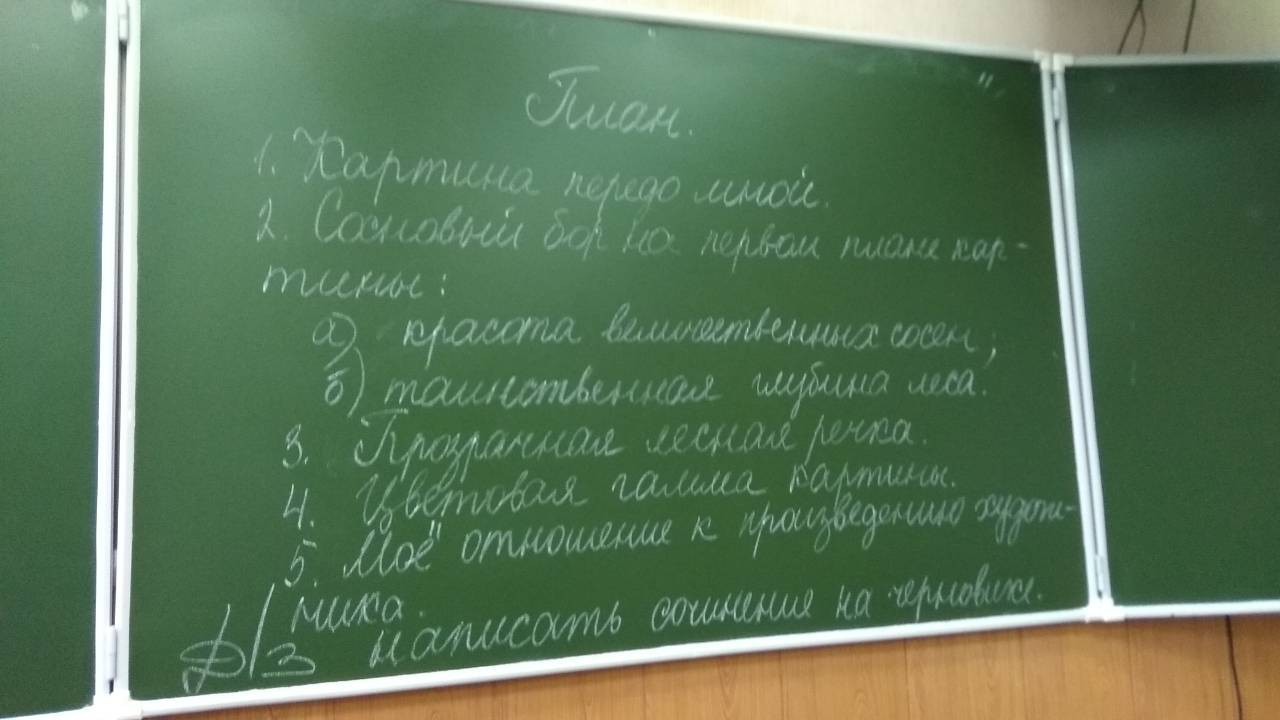 План.
1. Картина передо мной.
2. Сосновый бор на первом плане кар-
тины:
а) красота величественных сосен;
б) таинственная глубина леса.
3. Прозрачная лесная речка.
4. Цветовая гамма картины.
5. Моё отношение к произведению худож-
ника.
Д/з написать сочинение на черновике.